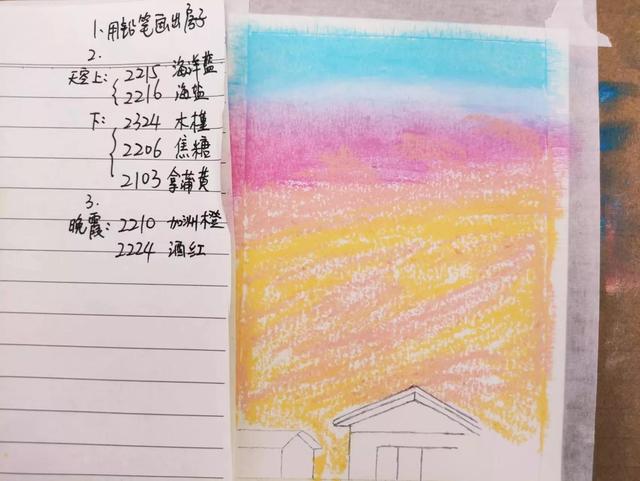 1、用铅笔画出房子
2.
天空上：2215 海洋蓝
2216 海盐
下：2324 木槿
2206 焦糖
2103 拿蒲黄
3.
晚霞：2210 加洲橙
2224 酒红